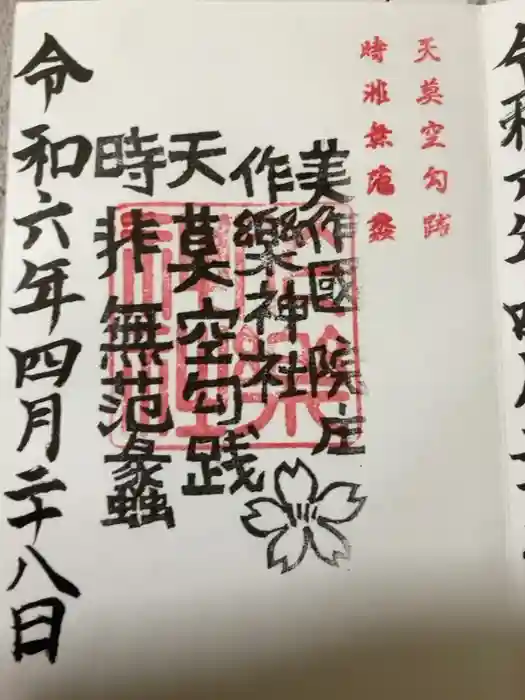 天莫空勾践
時非無范蠡
美作國院庄
作樂神社
天莫空勾践
時非無范蠡
作樂神社
令和六年四月二十八日